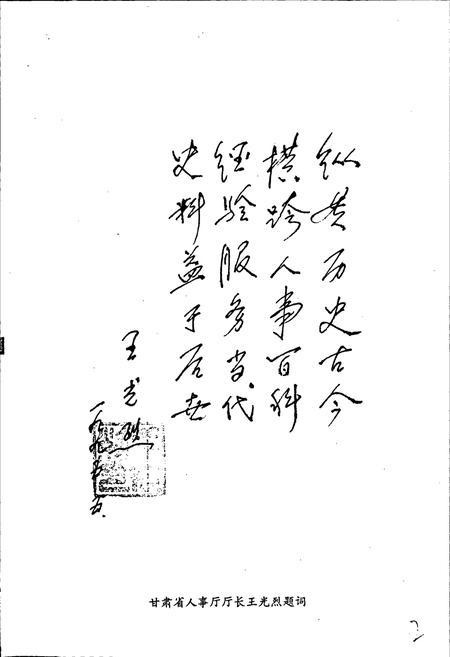 纵贯历史古今
横跨人事百科
经验服务当代
史料益于后世
王光烈
一九九五.五.
甘肃省人事厅厅长王光烈题词